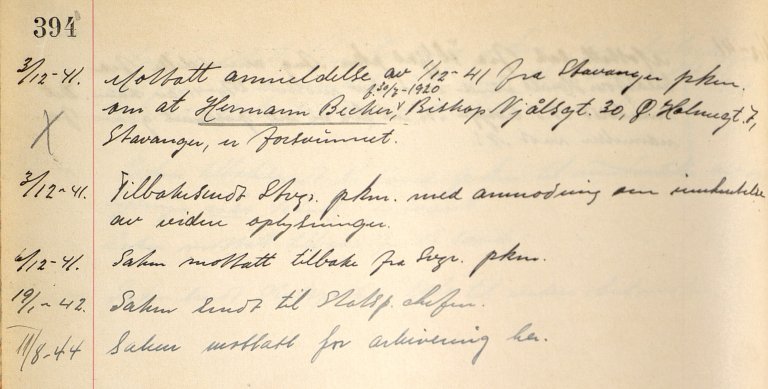 394
3/12-41. Mottatt anmeldelse av 1/12-41 fra Stavanger pkm.
f. 30/8-1920
om at Hermann Becker, Biskop Njålsgt. 30, Ø. Holmegt. 7,
Stavanger, er forsvunnet.
3/12-41. Tilbakesendt Stvgr. pkm. med anmodning om innhentelse
av videre oplysninger.
6/12-41. Saken mottatt tilbake fra Svgr. pkm.
19/1-42. Saken sendt til Statsp. chefen.
11/8-44 Saken mottatt for arkivering her.